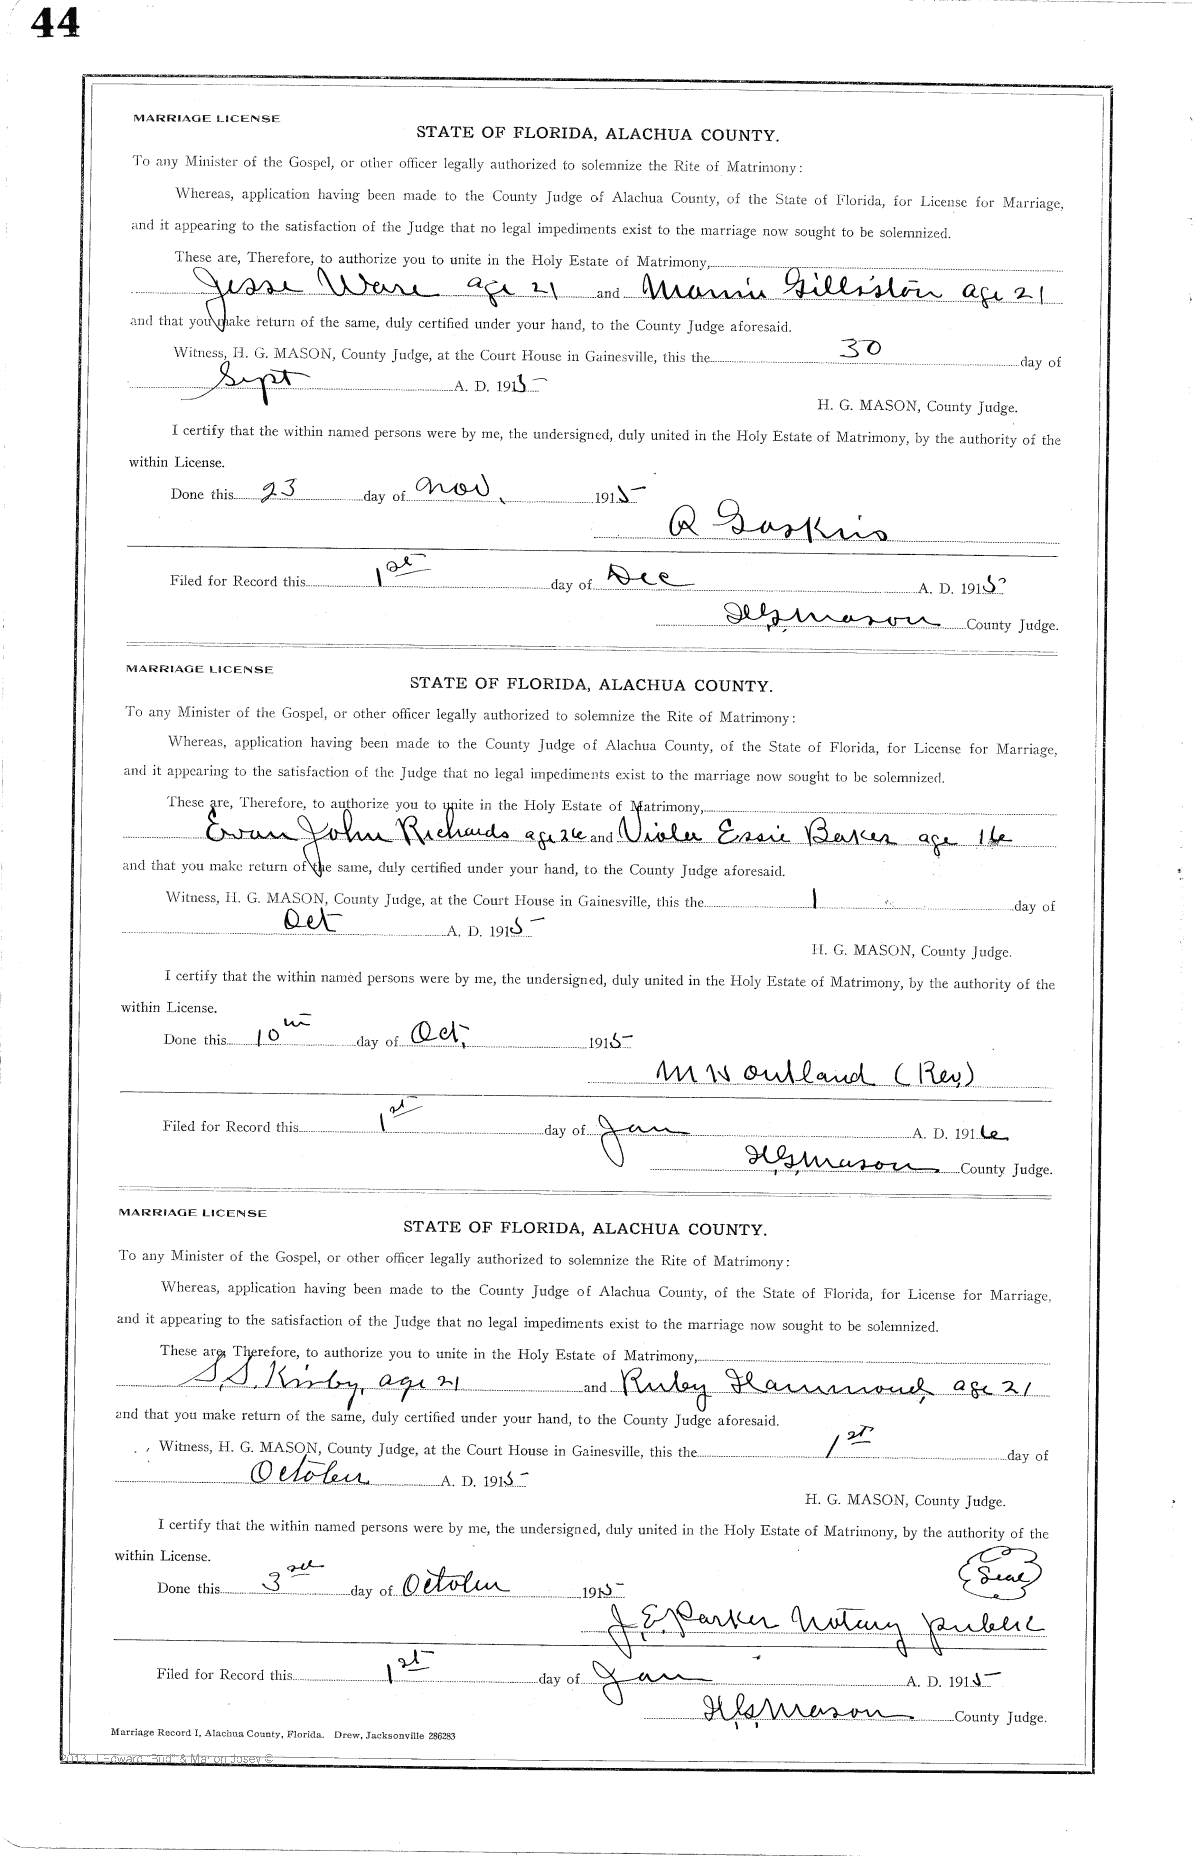 44
MARRIAGE LICENSE
STATE OF FLORIDA, ALACHUA COUNTY.
To any Minister of the Gospel, or other officer legally authorized to solemnize the Rite of Matrimony:
Whereas, application having been made to the County Judge of Alachua County, of the State of Florida, for License for Marriage,
and it appearing to the satisfaction of the Judge that no legal impediments exist to the marriage now sought to be solemnized.
These are, Therefore, to authorize you to unite in the Holy Estate of Matrimony,
Jesse Ware age 21 and Mamie Gilliston age 21
and that you make return of the same, duly certified under your hand, to the County Judge aforesaid.
Witness, H. G. MASON, County Judge, at the Court House in Gainesville, this the 30 day of
Sept A. D. 1915
H. G. MASON, County Judge.
I certify that the within named persons were by me, the undersigned, duly united in the Holy Estate of Matrimony, by the authority of the
within License.
Done this 23 day of Nov. 1915
R Gaskins
Filed for Record this 1st day of Dec A. D. 1915
H.G. Mason County Judge.
MARRIAGE LICENSE
STATE OF FLORIDA, ALACHUA COUNTY.
To any Minister of the Gospel, or other officer legally authorized to solemnize the Rite of Matrimony:
Whereas, application having been made to the County Judge of Alachua County, of the State of Florida, for License for Marriage,
and it appearing to the satisfaction of the Judge that no legal impediments exist to the marriage now sought to be solemnized.
These are, Therefore, to authorize you to unite in the Holy Estate of Matrimony,
Evan John Richards age 26 and Violer Essie Baker age 16
and that you make return of the same, duly certified under your hand, to the County Judge aforesaid.
Witness, H. G. MASON, County Judge, at the Court House in Gainesville, this the 1 day of
Oct A. D. 1915
H. G. MASON, County Judge.
I certify that the within named persons were by me, the undersigned, duly united in the Holy Estate of Matrimony, by the authority of the
within License.
Done this 10th day of Oct, 1915
M W Outland (Rev)
Filed for Record this 1st day of Jan A. D. 1916
H.G. Mason County Judge.
MARRIAGE LICENSE
STATE OF FLORIDA, ALACHUA COUNTY.
To any Minister of the Gospel, or other officer legally authorized to solemnize the Rite of Matrimony:
Whereas, application having been made to the County Judge of Alachua County, of the State of Florida, for License for Marriage,
and it appearing to the satisfaction of the Judge that no legal impediments exist to the marriage now sought to be solemnized.
These are, Therefore, to authorize you to unite in the Holy Estate of Matrimony,
S.S. Kirby, age 21 and Ruby Hammond, age 21
and that you make return of the same, duly certified under your hand, to the County Judge aforesaid.
Witness, H. G. MASON, County Judge, at the Court House in Gainesville, this the 1st day of
October A. D. 1915
H. G. MASON, County Judge.
I certify that the within named persons were by me, the undersigned, duly united in the Holy Estate of Matrimony, by the authority of the
within License.
Seal
Done this 3rd day of October 1915
J. E. Parker Notary public
Filed for Record this 1st day of Jan A. D. 1915
H.G. Mason County Judge.
Marriage Record I, Alachua County, Florida. Drew, Jacksonville 286283